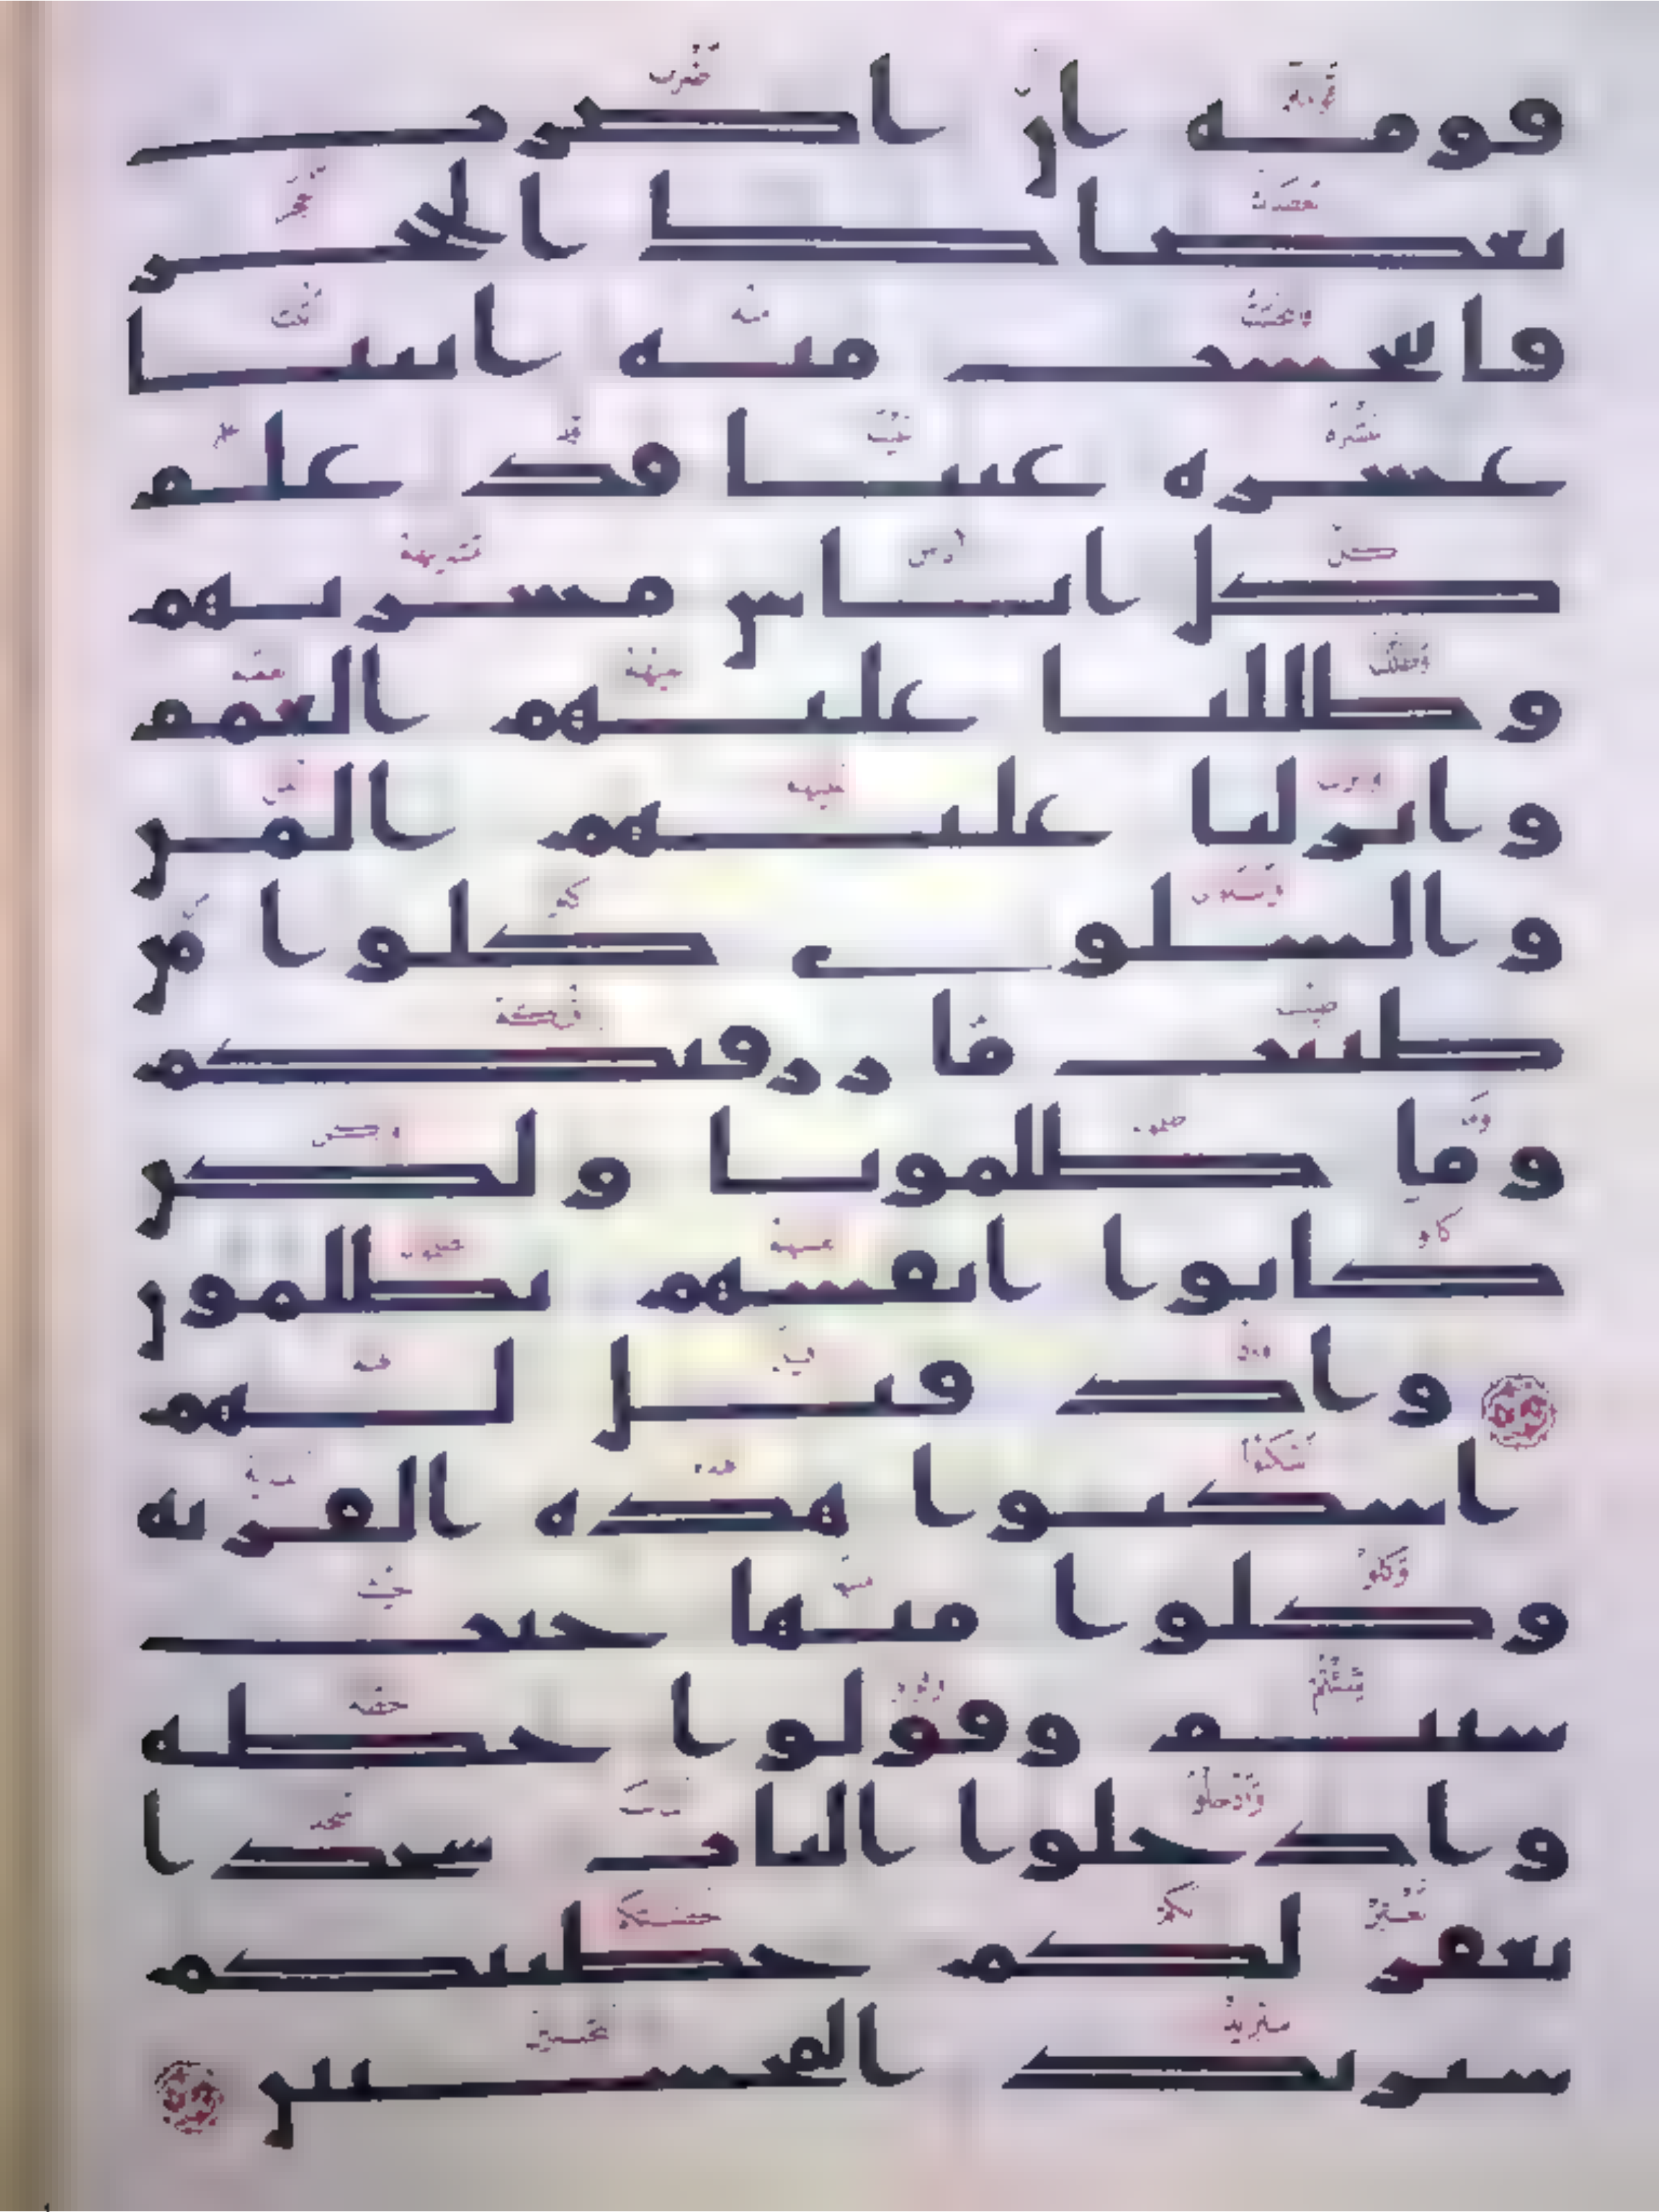 قومه ان اضرب
بعصاك الحجر
فانبجست منه اثنتا
عشره عينا قد علم
كل اناس مشربهم
وظللنا عليهم الغمم
وانزلنا عليهم المن
والسلوى كلوا من
طيبت ما رزقنكم
وما ظلمونا ولكن
كانوا انفسهم يظلمون
واذ قيل لهم
اسكنوا هذه القريه
وكلوا منها حيث
شئتم وقولوا حطه
وادخلوا الباب سجدا
نغفر لكم خطيتكم
سنزيد المحسنين